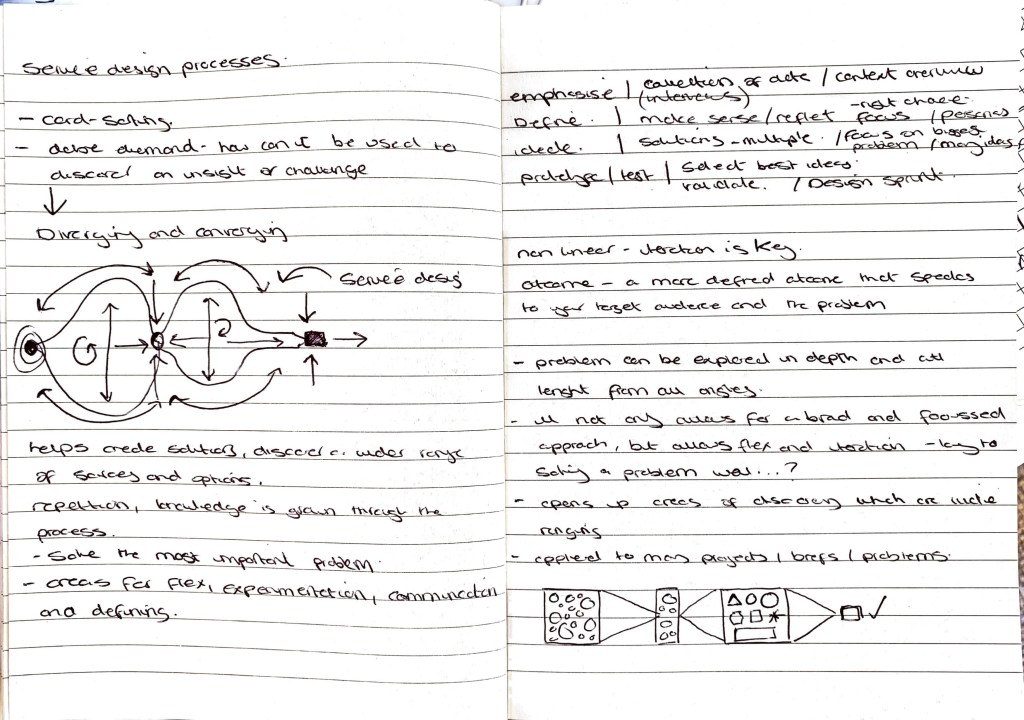 Service design processes.
- card-sorting.
- demand - how can it be used to
discover an insight or challenge
Diverging and converging
Service design
helps create solutions, discover a wider range
of sources and options.
repetition, knowledge is grown through the
process.
- Solve the most important problem.
- areas for flex, experimentation, communication
and defining.
emphasise / collection of data / context overview
(interviews)
Define. / make sense / reflect - right choice - focus / personas
ideate. / solutions - multiple. / focus on biggest
problem / many ideas
prototype / test / select best ideas.
validate. / Design sprint.
non linear - iteration is key.
outcome - a more defined outcome that speaks
to your target audience and the problem
- problem can be explored in depth and at
lenght from all angles.
- it not only allows for a broad and focussed
approach, but allows flex and iteration - key to
solving a problem well...?
- opens up areas of discovery which are wide
ranging
- applied to many projects / briefs / problems.